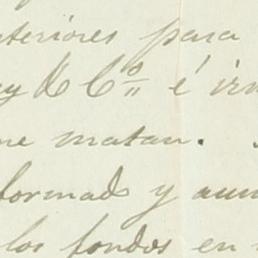 nteriores para
y & Cº é irn
me matan.
formado y aun
los fondos en